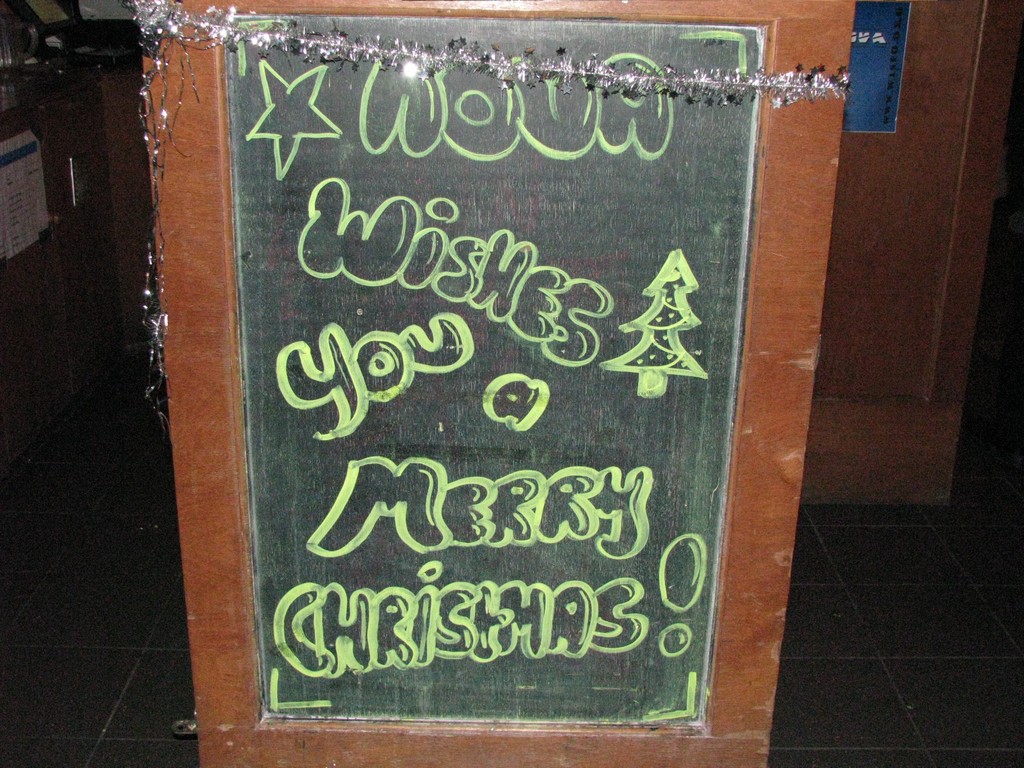 NOVA
WISHES
YOU
A
MERRY
CHRISTMAS!